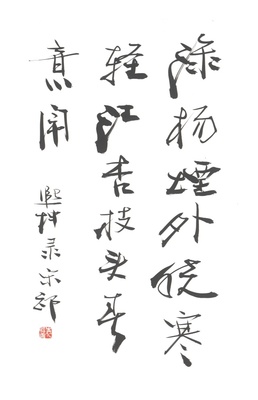 绿杨煙外晓寒
轻红杏枝头春
意闹
熙录宋祁